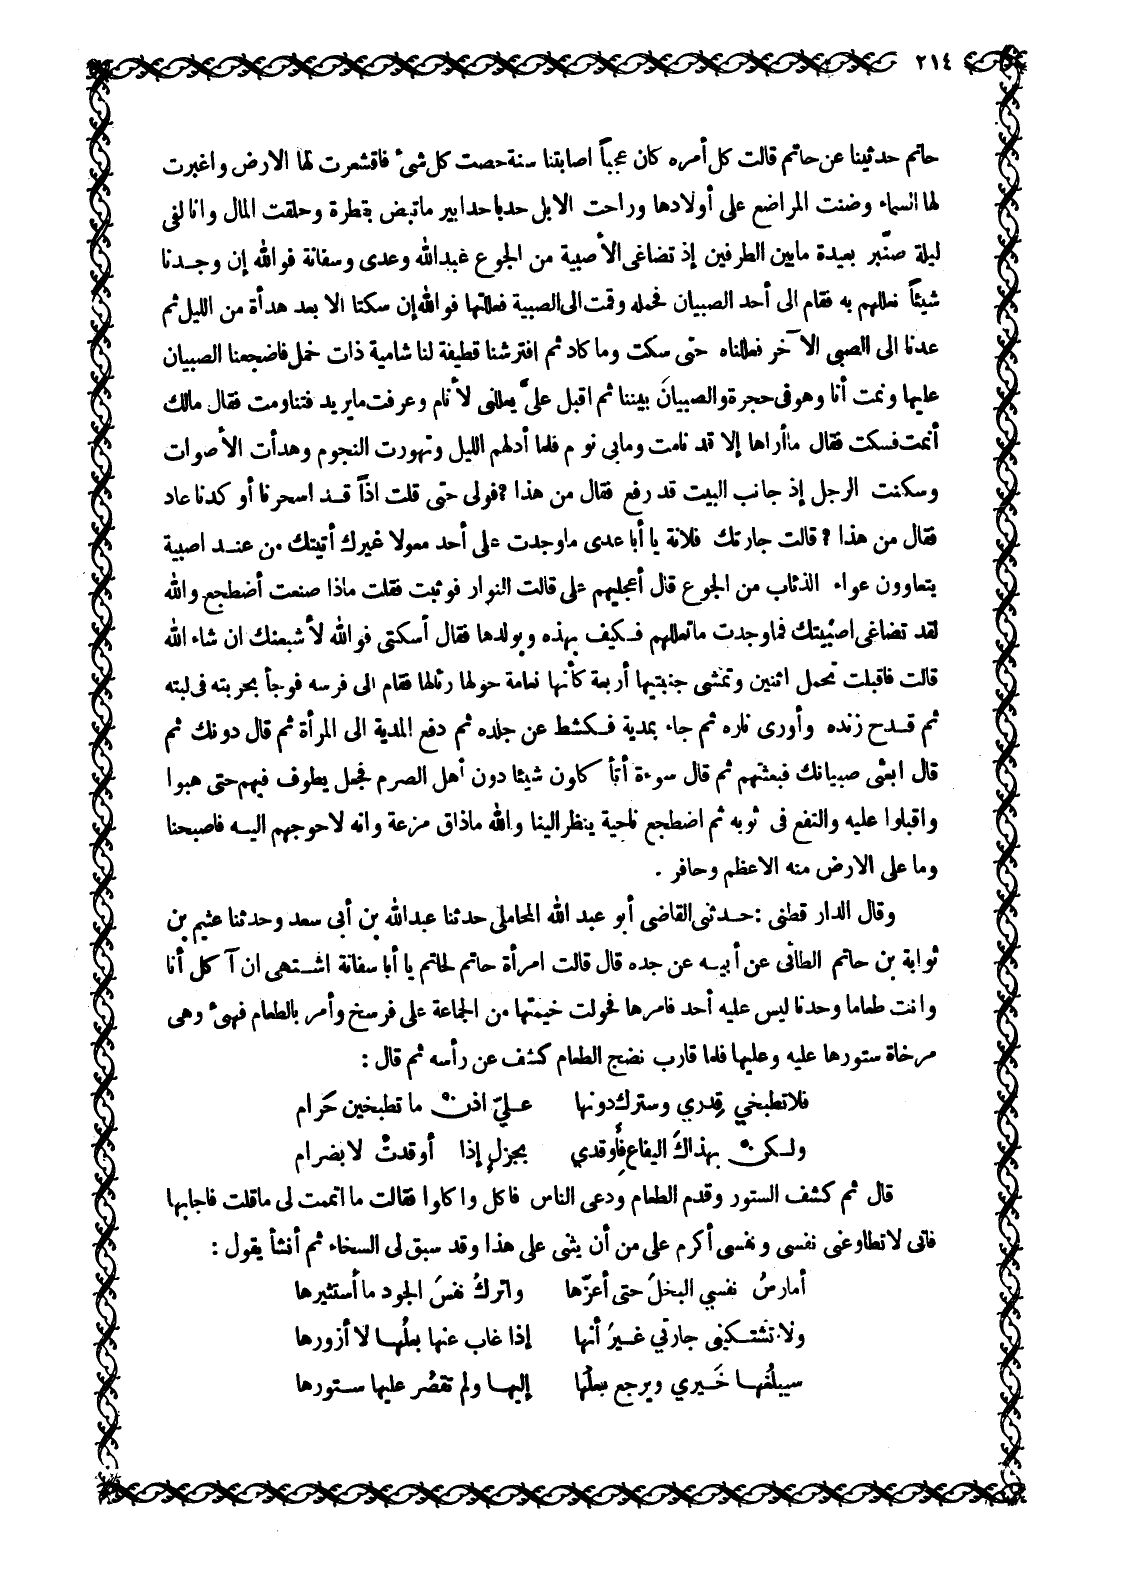 ٢١٤
حاتم حدثينا عن حاتم قالت كل أمره كان عجباً اصابتنا سنة حصت كل شىء فاقشعرت لها الارض واغبرت
لها السماء وضنت المراضع على أولادها وراحت الابل حدبا حدابير ماتبض بقطرة وحلقت المال وانا لفى
ليلة صنّبر بعيدة مابين الطرفين إذ تضاغى الأصبية من الجوع عبدالله وعدى وسفانة فوالله إن وجدنا
شيئاً نعللهم به فقام الى أحد الصبيان فحمله وقمت الى الصبية فعللتها فوالله إن سكتا الا بعد هدأة من الليل ثم
عدنا الى الصبى الآخر فعللناه حتى سكت وما كاد ثم افترشنا قطيفة لنا شامية ذات خمل فاضجعنا الصبيان
عليها ونمت أنا وهو فى حجرة والصبيان بيننا ثم اقبل علىّ يعللنى لأنام وعرفت مايريد فتناومت فقال مالك
أنمت فسكت فقال ماأراها إلا قد نامت ومابى نوم فلما أدلهم الليل وتهورت النجوم وهدأت الأصوات
وسكنت الرجل إذ جانب البيت قد رفع فقال من هذا ؟ فولى حتى قلت اذاً قد اسحرنا أو كدنا عاد
فقال من هذا ؟ قالت جارتك فلانة يا أبا عدى ماوجدت على أحد معولا غيرك أتيتك من عند اصبية
يتعاوون عواء الذئاب من الجوع قال أعجليهم على قالت النوار فوثبت فقلت ماذا صنعت أضطجع والله
لقد تضاغى اصبيتك فماوجدت ماتعللهم فكيف بهذه وبولدها فقال أسكتى فوالله لأشبعنك ان شاء الله
قالت فاقبلت تحمل اثنين وتمشى جنبتيها أربعة كأنها نعامة حولها رئالها فقام الى فرسه فوجأ بحربته فى لبته
ثم قدح زنده وأورى ناره ثم جاء بمدية فكشط عن جلده ثم دفع المدية الى المرأة ثم قال دونك ثم
قال ابعثى صبيانك فبعثتهم ثم قال سوءة أتأكلون شيئا دون أهل الصرم فجعل يطوف فيهم حتى هبوا
واقبلوا عليه والتفع فى ثوبه ثم اضطجع ناحية ينظر الينا والله ماذاق مزعة وانه لاحوجهم اليه فاصبحنا
وما على الارض منه الاعظم وحافر .
وقال الدار قطنى : حدثنى القاضى أبو عبد الله المحاملى حدثنا عبدالله بن أبى سعد وحدثنا عثيم بن
ثوابة بن حاتم الطائى عن أبيه عن جده قال قالت امرأة حاتم لحاتم يا أبا سفانة اشتهى ان آكل أنا
وانت طعاما وحدنا ليس عليه أحد فامرها فحولت خيمتها من الجماعة على فرسخ وأمر بالطعام فهىء وهى
مرخاة ستورها عليه وعليها فلما قارب نضج الطعام كشف عن رأسه ثم قال :
فلاتطبخي قِدري وسترك دونها علـيّ اذن ما تطبخين حَرام
ولكن بهذاكَ اليفاع فأوقدي بجزلٍ إذا أوقدتْ لابضرام
قال ثم كشف الستور وقدم الطعام ودعى الناس فاكل واكلوا فقالت ما اتممت لى ماقلت فاجابها
فانى لاتطاوعنى نفسى ونفسى أكرم على من أن يثنى على هذا وقد سبق لى السخاء ثم أنشأ يقول :
أمارسُ نفسي البخلَ حتى أعزّها واتركُ نفسَ الجود ماأستثيرها
ولاتشتكيني جارتي غيرُ أنها إذا غاب عنها بعلُها لا أزورها
سيبلُغها خَيري ويرجع بعلُها إليها ولم تقصُر عليها ستورها